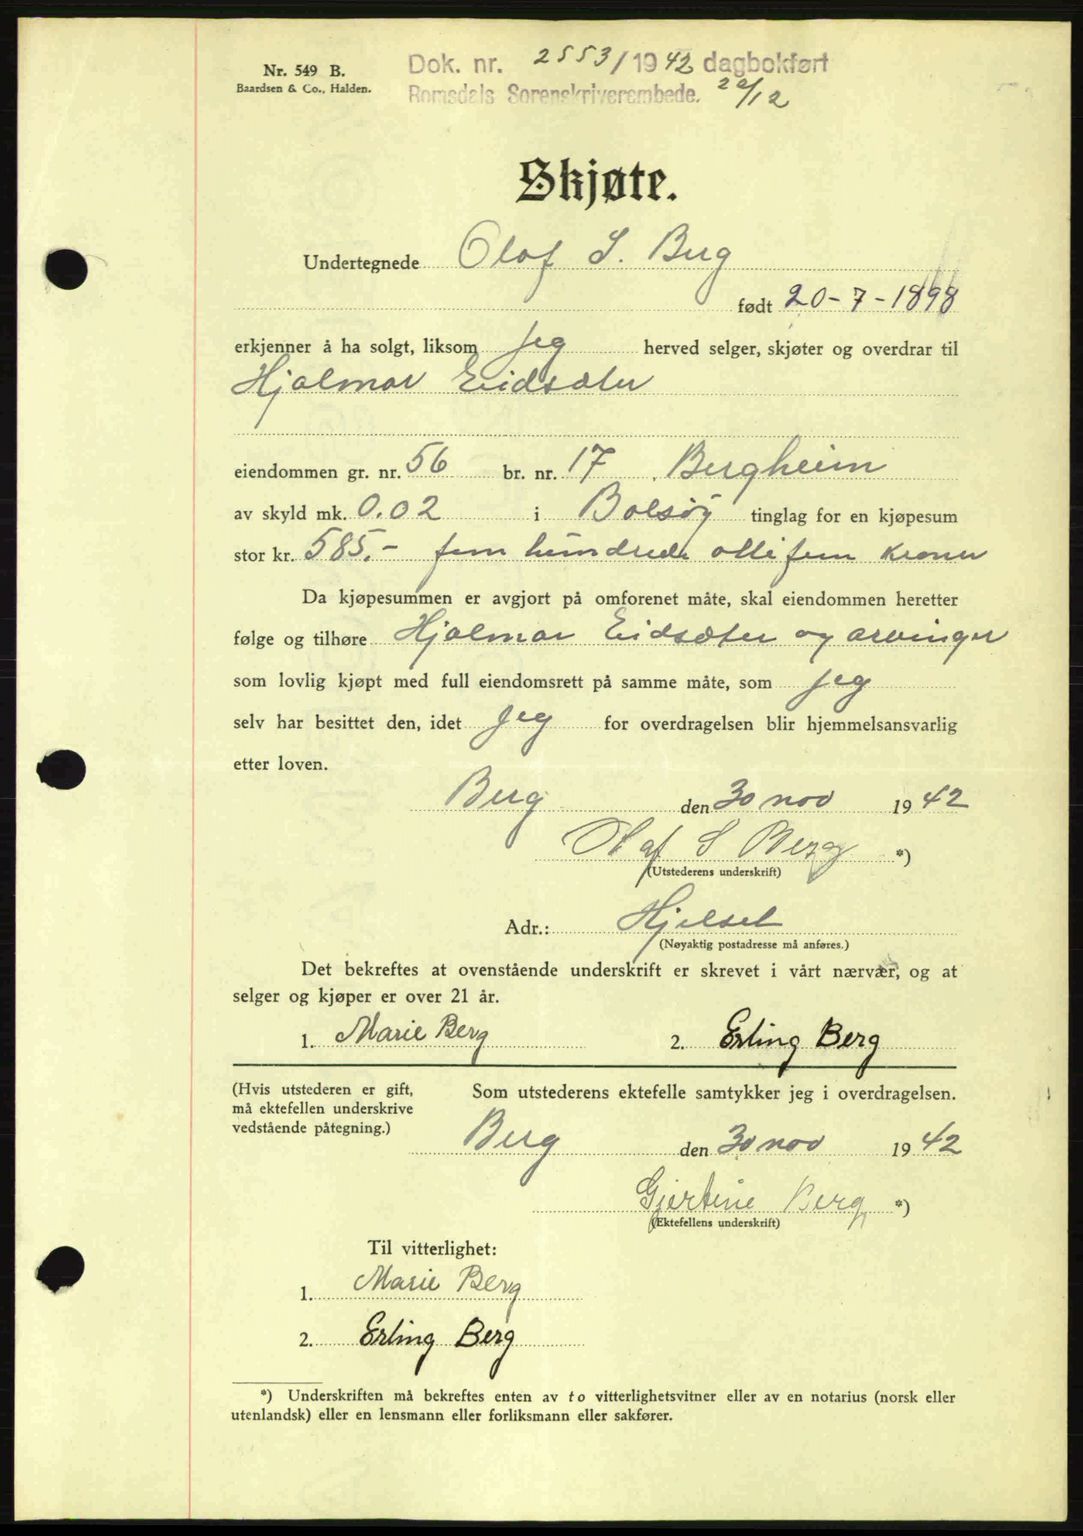 Nr. 549 B.
Baardsen & Co., Halden.
Dok. nr. 2553/1942 dagbokført
Romsdals Sorenskriverembede. 22/12
Skjøte.
Undertegnede Olaf S. Berg
født 20-7-1898
erkjenner å ha solgt, liksom jeg herved selger, skjøter og overdrar til
Hjalmar Eidsæter
eiendommen gr. nr. 56 br. nr. 17 . Bergheim
av skyld mk. 0.02 i Bolsøy tinglag for en kjøpesum
stor kr. 585.- fem hundrede ottifem kroner
Da kjøpesummen er avgjort på omforenet måte, skal eiendommen heretter
følge og tilhøre Hjalmar Eidsæter og arvinger
som lovlig kjøpt med full eiendomsrett på samme måte, som jeg
selv har besittet den, idet jeg for overdragelsen blir hjemmelsansvarlig
etter loven.
Berg den 30 nov 1942
Olaf S Berg *)
(Utstederens underskrift)
Adr.: Hjelset
(Nøyaktig postadresse må anføres.)
Det bekreftes at ovenstående underskrift er skrevet i vårt nærvær, og at
selger og kjøper er over 21 år.
1. Marie Berg 2. Erling Berg
(Hvis utstederen er gift,
må ektefellen underskrive
vedstående påtegning.)
Som utstederens ektefelle samtykker jeg i overdragelsen.
Berg den 30 nov 1942
Gjertine Berg *)
(Ektefellens underskrift)
Til vitterlighet:
1. Marie Berg
2. Erling Berg
*) Underskriften må bekreftes enten av to vitterlighetsvitner eller av en notarius (norsk eller
utenlandsk) eller en lensmann eller forliksmann eller sakfører.